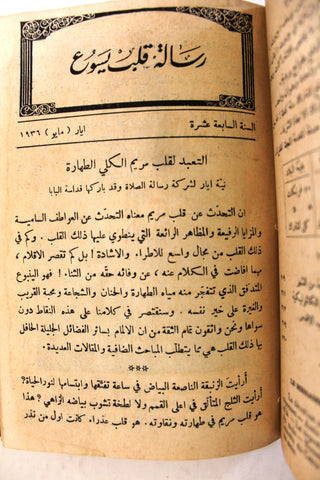 رسالة قلب يسوع
السنة السابعة عشرة
ايار ( مايو ) ١٩٣٦
التعبد لقلب مريم الكلي الطهارة
نية ايار لشركة رسالة الصلاة وقد باركها قداسة البابا
ان التحدث عن قلب مريم معناه التحدث عن العواطف السامية
والمزايا الرفيعة والمظاهر الرائعة التي ينطوي عليها ذلك القلب. وكم في
ذلك القلب من مجال واسع للاطراء والاشادة! بل كم تقصر الاقلام،
مهما افاضت في الكلام عنه، عن وفائه حقّه من الثناء! فهو الينبوع
المتدفق الذي تتفجّر منه مياه الطهارة والحنان والشجاعة ومحبة القريب
والغيرة على خير نفسه. وسنقتصر في كلامنا على هذه النقاط دون
سواها ونحن واثقون تمام الثقة من ان الالمام بسائر الفضائل الجليلة الحافل
بها ذلك القلب هي مما يتطلّب المباحث الضافية والمقالات العديدة.
***
أرأيت الزنبقة الناصعة البياض في ساعة تفتّقها وابتسامها لنور الحياة؟
أرأيت الثلج المتألق في اعلى القمم ولا لطخة تشوب بياضه الزاهي؟ هذا
هو قلب مريم في طهارته ونقاوته. هو قلب عذراء كانت اول من نذر